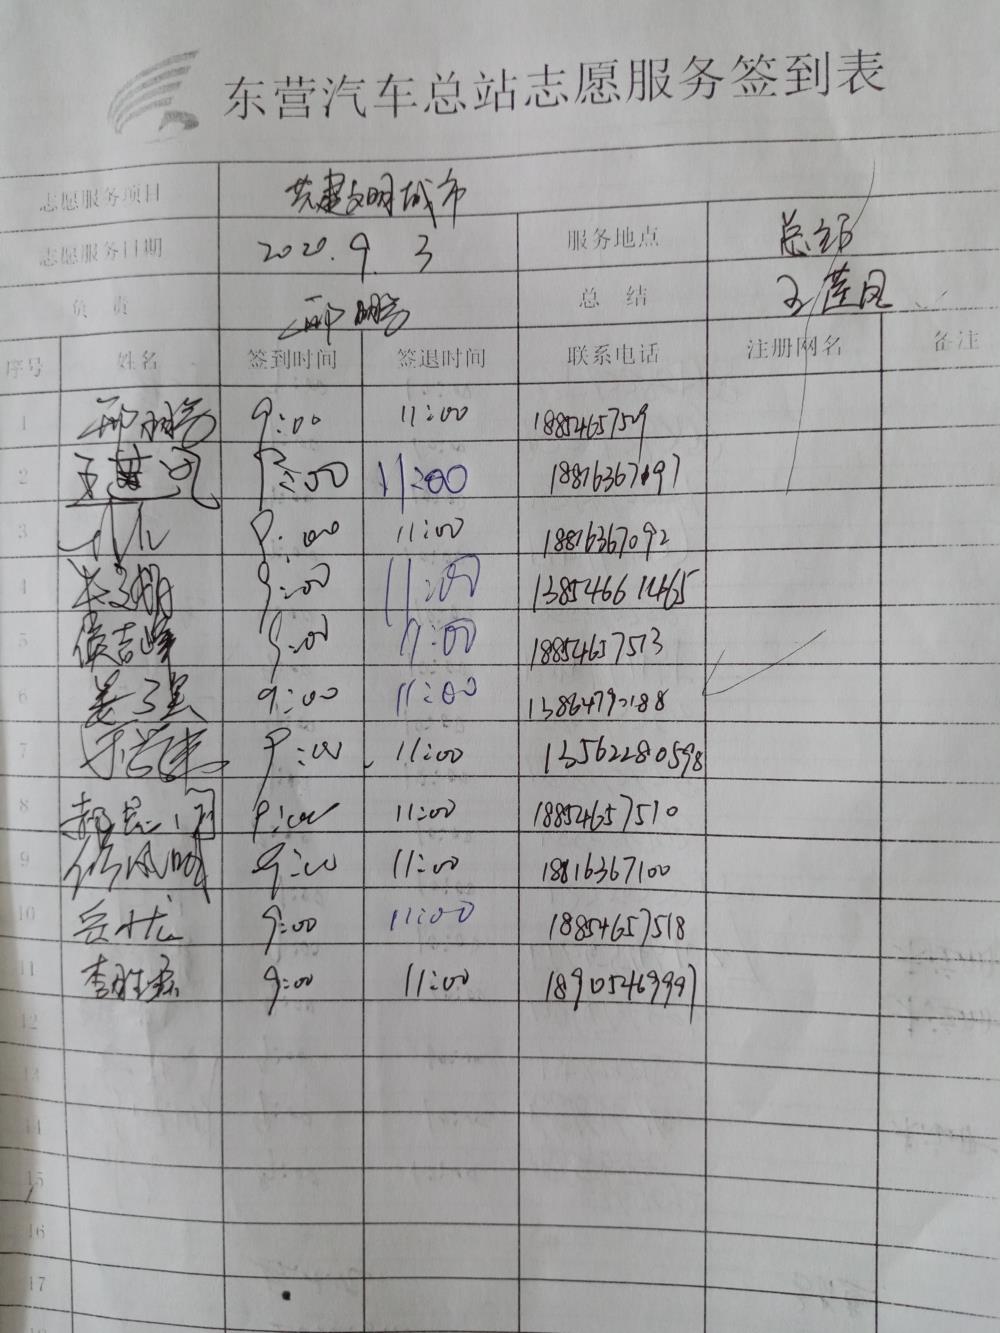 东营汽车总站志愿服务签到表
志愿服务项目 共建文明城市
志愿服务日期 2020.9.3 服务地点 总站
负责 邢鹏 总结 王莲凤
序号 姓名 签到时间 签退时间 联系电话 注册网名 备注
1 邢鹏 9:00 11:00 18854657509
2 王莲凤 9:00 11:00 18816367097
3 9:00 11:00 18816367092
4 9:00 11:00
5 侯吉峰 9:00 11:00 18854657513
6 姜 9:00 11:00
7 9:00 11:00 13562280598
8 郝 9:00 11:00 18854657510
9 9:00 11:00 18816367100
10 9:00 11:00 18854657518
11 李胜 9:00 11:00 18905469997
12
13
14
15
16
17
18